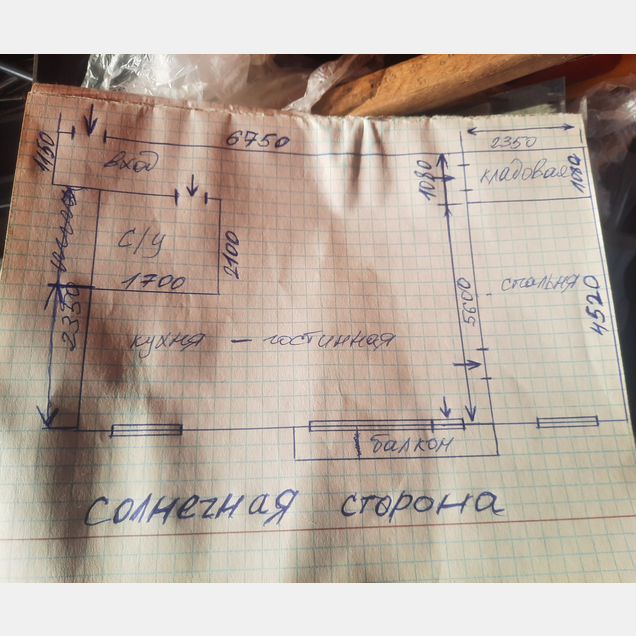 6750
2350
1150
вход
1080
кладовая
1080
с/у
2100
1700
2350
5600
спальня
4520
кухня — гостинная
балкон
солнечная сторона